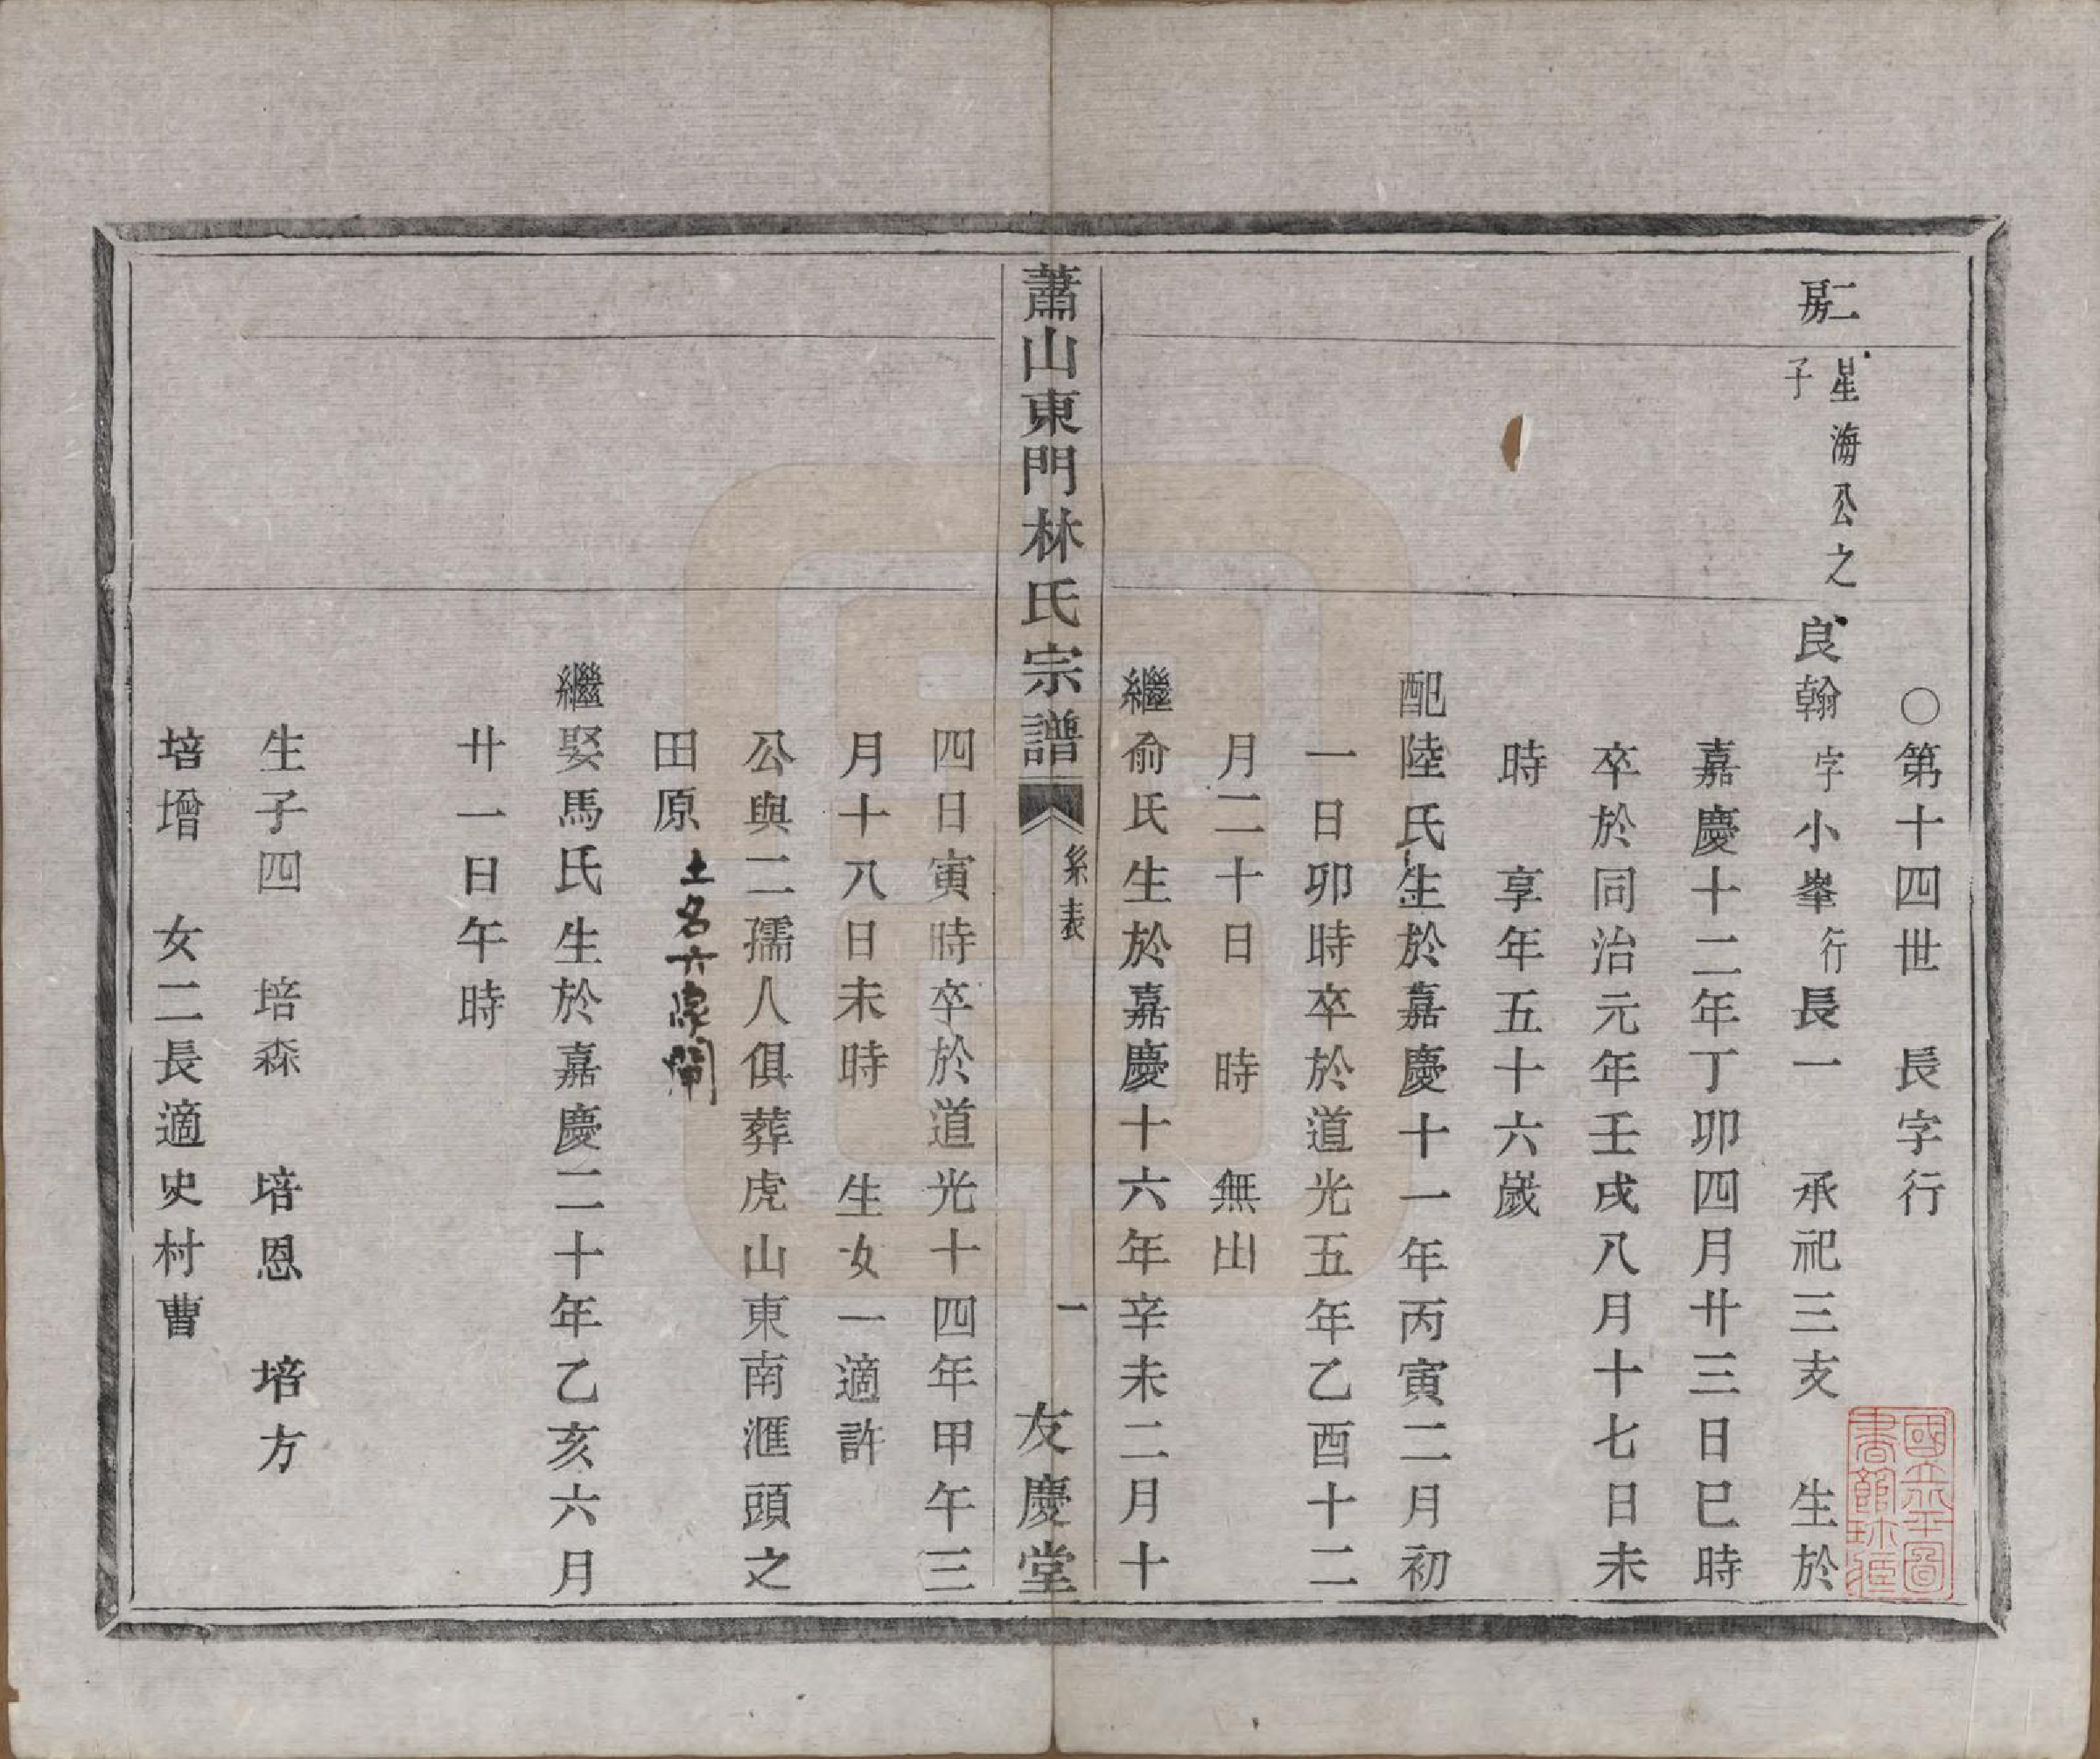 ○第十四世　長字行
二房
星海公之子
良翰字小峯行長一　承祀三支　生於
嘉慶十二年丁卯四月廿三日巳時
卒於同治元年壬戌八月十七日未
時　享年五十六歲
配陸氏生於嘉慶十一年丙寅二月初
一日卯時卒於道光五年乙酉十二
月二十日　時　無出
繼俞氏生於嘉慶十六年辛未二月十
蕭山東門林氏宗譜　系表　一　友慶堂
四日寅時卒於道光十四年甲午三
月十八日未時　生女一適許
公與二孺人俱葬虎山東南滙頭之
田原土名六家閘
繼娶馬氏生於嘉慶二十年乙亥六月
廿一日午時
生子四　培森　培恩　培方
培增　女二長適史村曹
國立北平圖書館珍藏